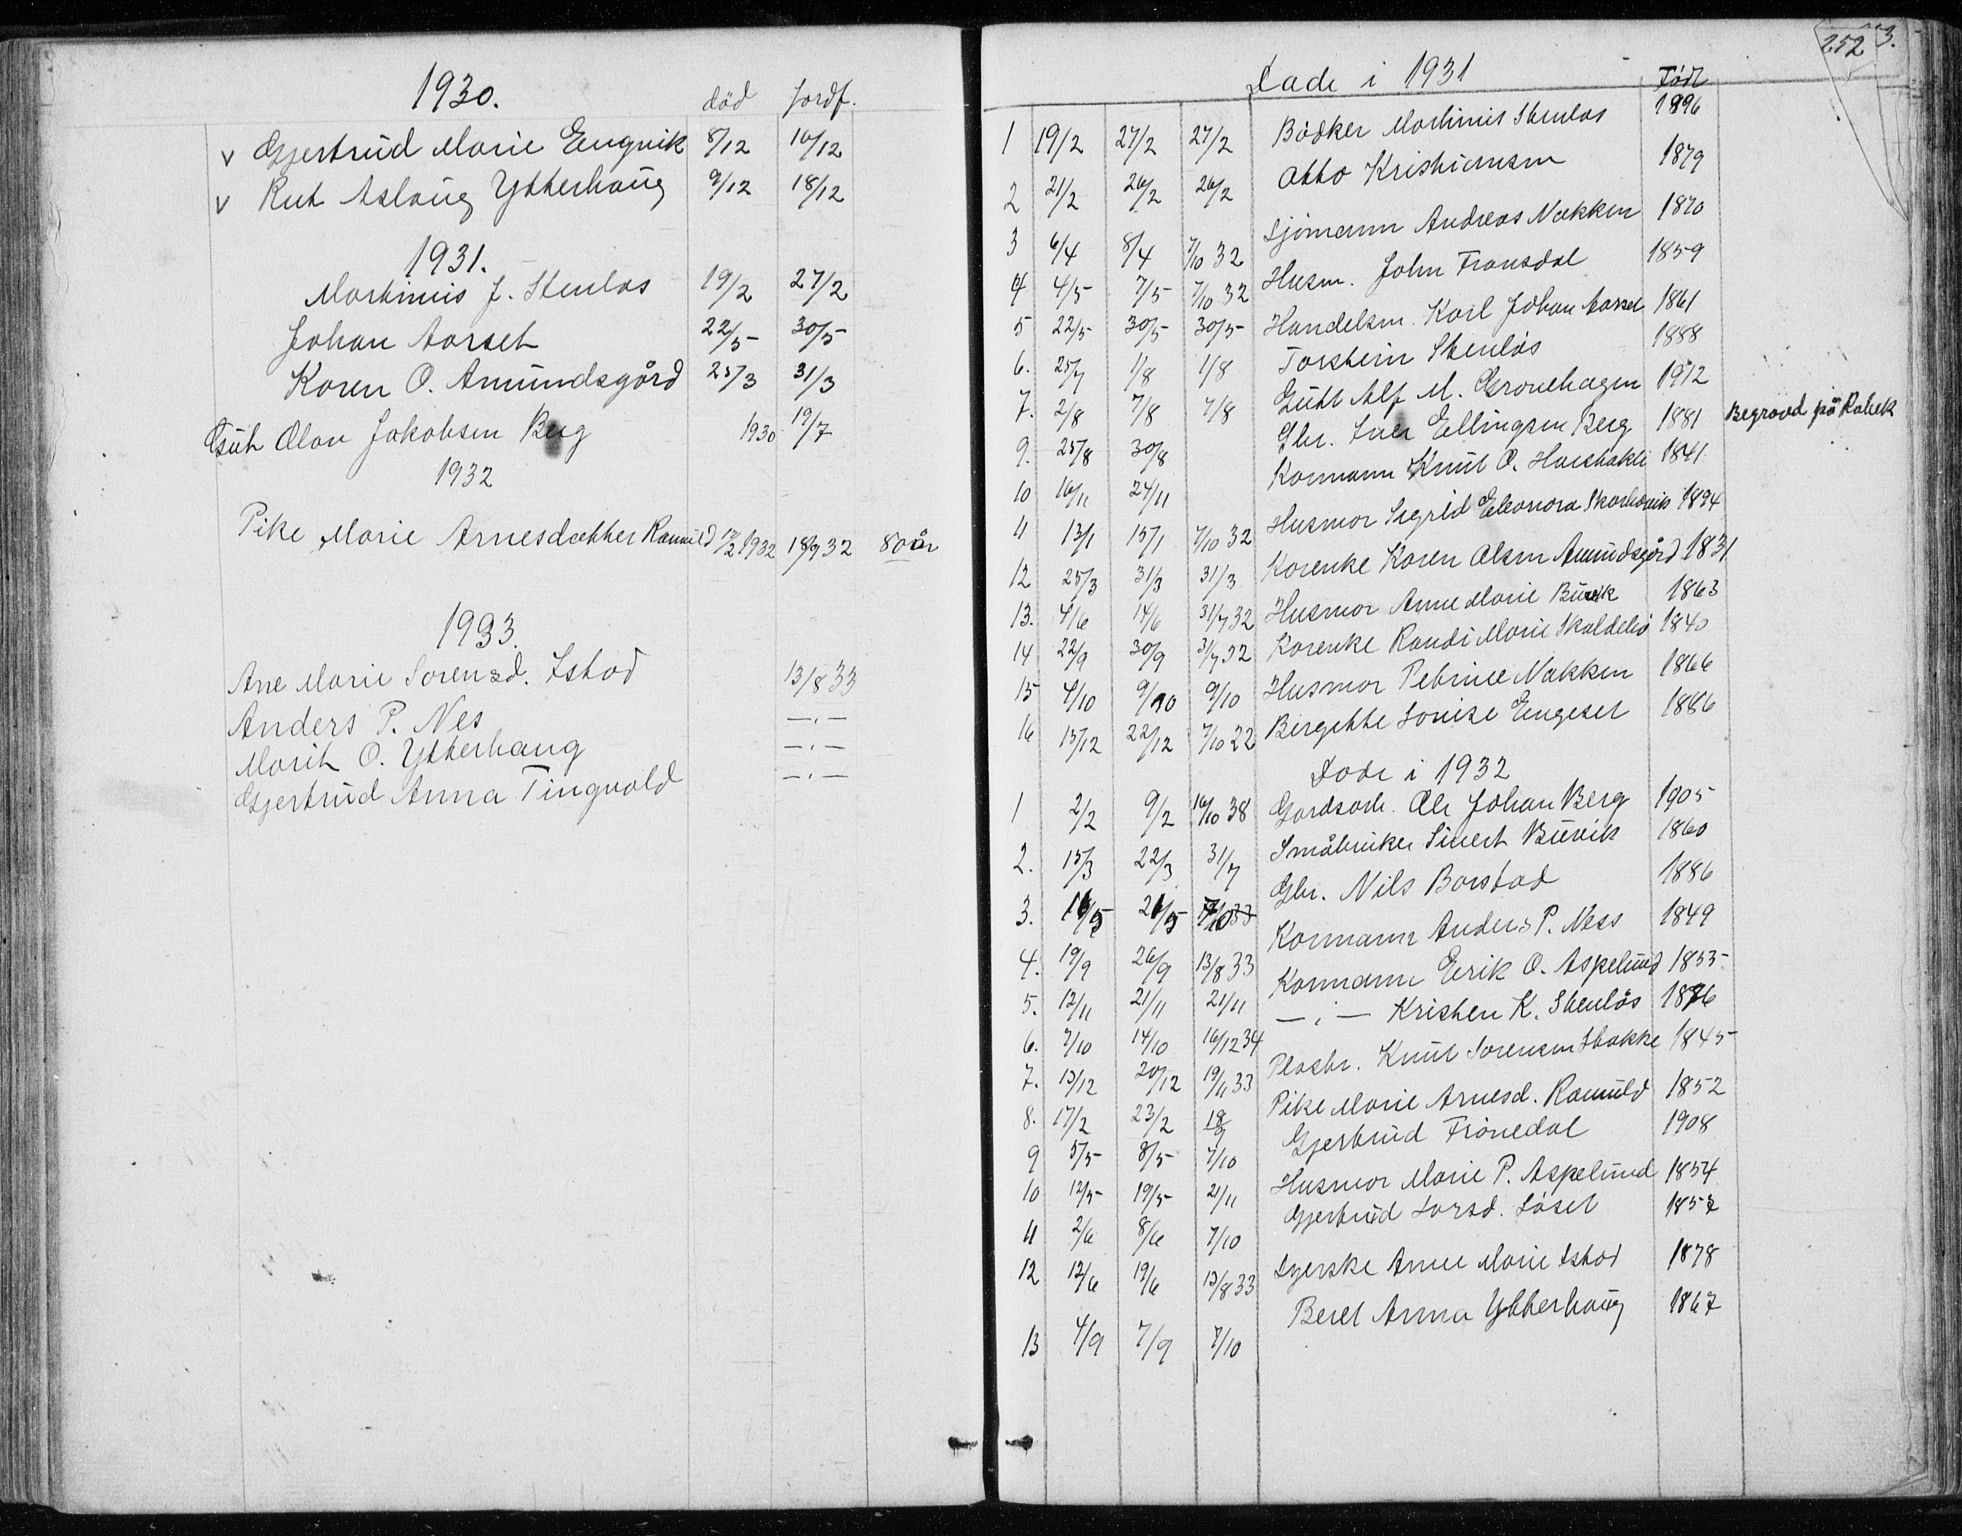 1930. død jordf.
v Gjertrud Marie Engvik 8/12 16/12
v Rut Aslaug Ytterhaug 9/12 18/12
1931.
Martinus J. Stenløs 19/2 27/2
Johan Aarset 22/5 30/5
Karen O. Amundsgård 25/3 31/3
Gut Olav Jakobsen Berg 1930 19/7
1932
Pike Marie Arnesdatter Ramuld 17/2 1932 18/9 32 80 år
1933.
Ane Marie Sorensd. Istad 13/8 33
Anders P. Nes —〃—
Marit O. Ytterhaug —〃—
Gjertrud Anna Tingvold —〃—
252 3.
Døde i 1931 Født
1 19/2 27/2 27/2 Bødker Martinus Stenløs 1896
2 21/2 26/2 26/2 Otto Kristiansen 1879
3 6/4 8/4 7/10 32 Sjømann Andreas Nakken 1870
4 4/5 7/5 7/10 32 Husm. John Fransdal 1859
5 22/5 30/5 30/5 Handelsm. Karl Johan Aarset 1861
6. 25/7 1/8 1/8 Torstein Stenløs 1888
7. 2/8 7/8 7/8 Gutt Alf M. Gronehagen 1912
9. 25/8 30/8 Gbr. Iver Ellingsen Berg 1881 Begravd på Røbek
10 16/11 24/11 Kormann Knut O. Harstakli 1841
11 13/1 15/1 7/10 32 Husmor Sigrid Eleonora Skarhøvik 1894
12 25/3 31/3 31/3 Korenke Karen Olsen Amundsgård 1831
13. 4/6 14/6 31/7 32 Husmor Anne Marie Buvik 1863
14 22/9 30/9 31/7 32 Korenke Randi Marie Skaldelið 1840
15 4/10 9/10 9/10 Husmor Petrine Nakken 1866
16 15/12 22/12 7/10 22 Bergitte Lovise Engeset 1886
Døde i 1932
1 2/2 9/2 16/10 38 Gardsarb. Ole Johan Berg 1905
2. 15/3 22/3 31/7 Småbruker Sivert Buvik 1860
3. 16/5 26/5 7/10 33 Gbr. Nils Barstad 1886
4. 19/9 26/9 13/8 33 Kormann Anders P. Ness 1849
5. 12/11 21/11 21/11 Kormann Eerik O. Aspelund 1853
6. 7/10 14/10 16/12 34 —〃— Kristen K. Stenløs 1876
7. 13/12 20/12 19/11 33 Plasbr. Knut Sorensen Stokke 1845
8. 17/2 23/2 18/9 Pike Marie Arnesd. Ramuld 1852
9 5/5 8/5 7/10 Gjertrud Frånedal 1908
10 12/5 19/5 21/11 Husmor Marie P. Aspelund 1854
11 2/6 8/6 7/10 Gjertrud Larsd. Løset 1857
12 12/6 19/6 13/8 33 Syerske Anne Marie Istad 1878
13 4/9 7/9 7/10 Beret Anna Ytterhaug 1867